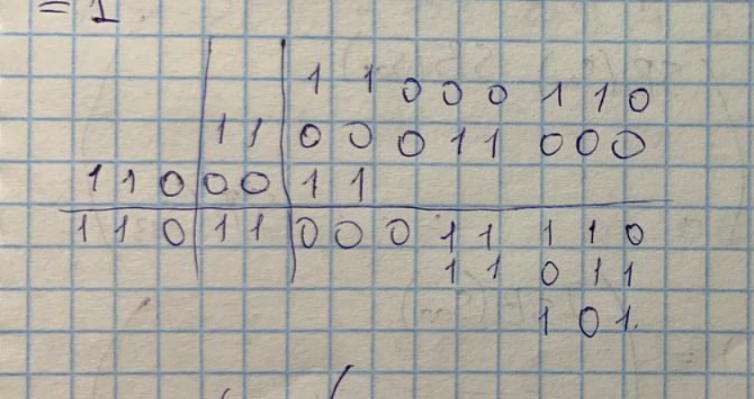 = 1
1 1 0 0 0 1 1 0
1 1 0 0 0 1 1 0 0 0
1 1 0 0 0 1 1
1 1 0 1 1 0 0 0 1 1 1 1 0
1 1 0 1 1
1 0 1.